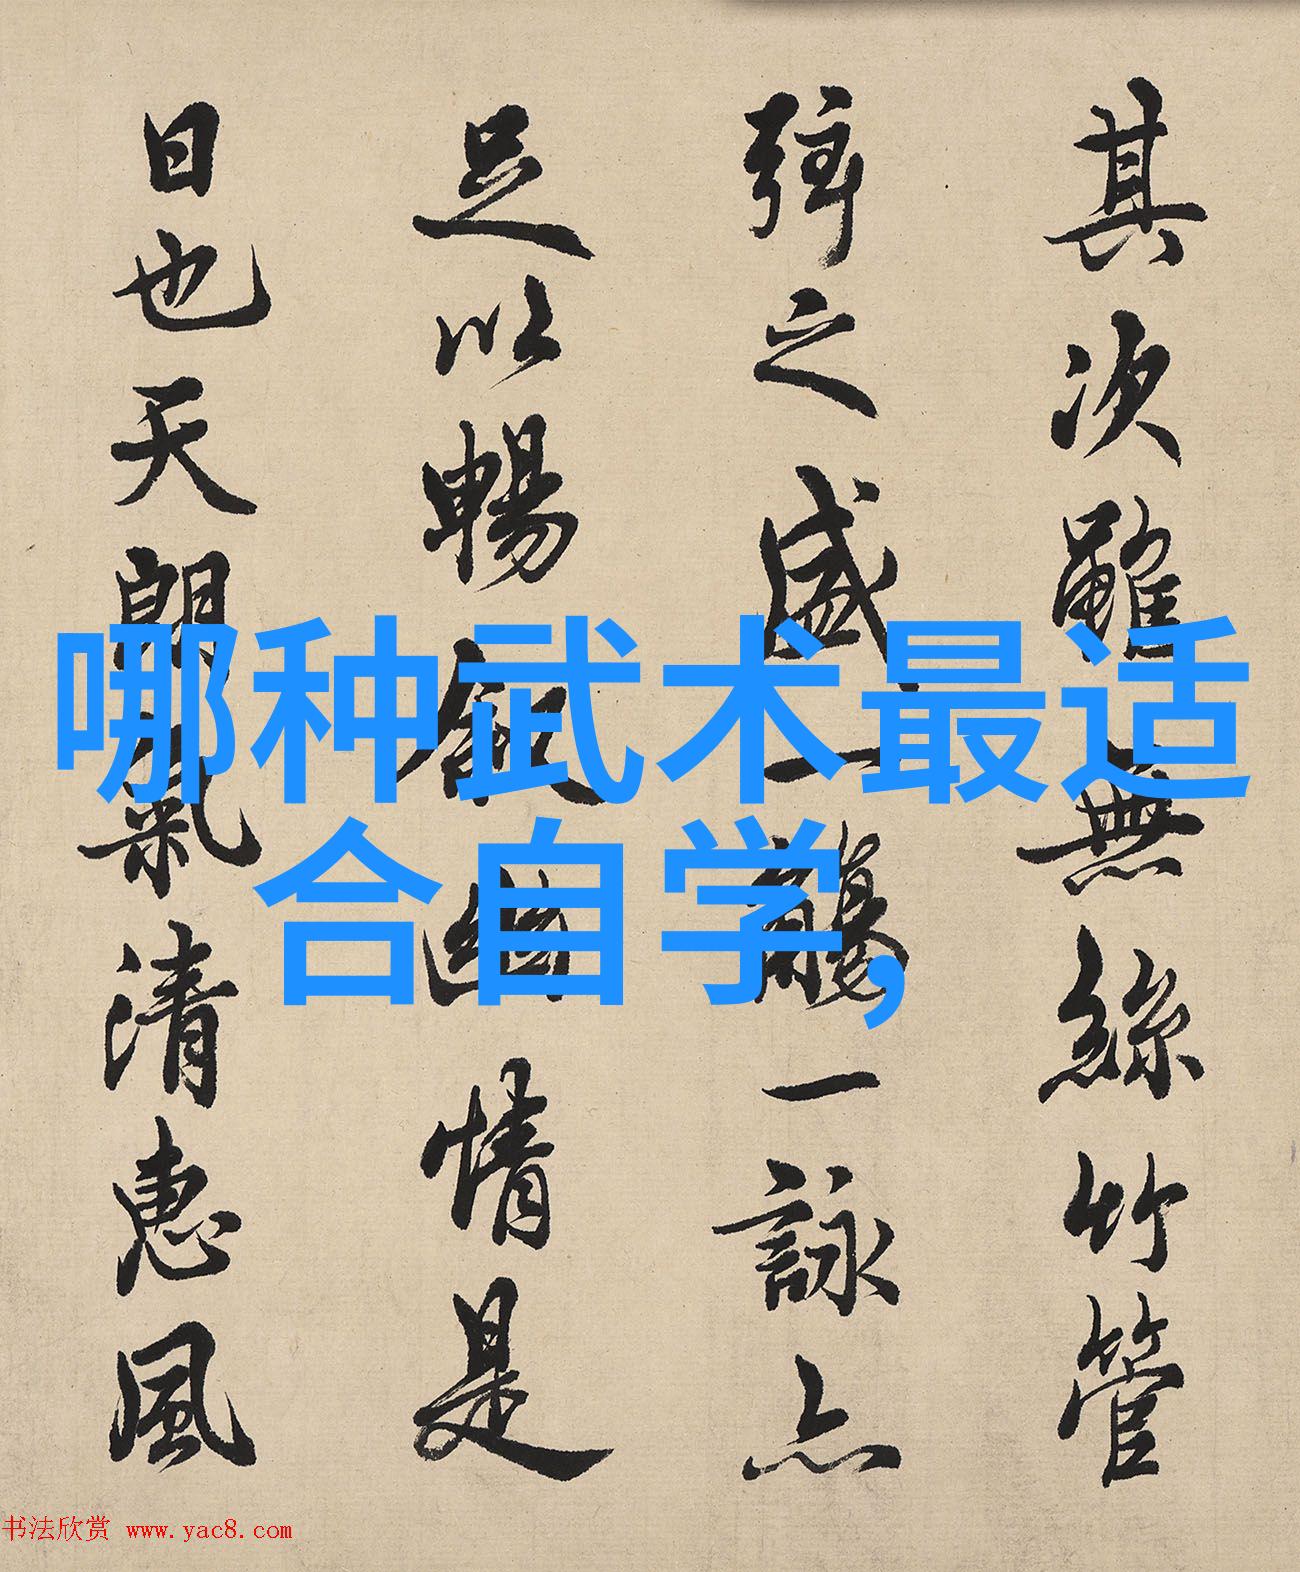 其次雖無絲竹管
弦之盛一觴一詠亦
足以暢叙幽情是
日也天朗氣清惠風
哪种武术最适
合自学,
书法欣赏 www.yac8.com